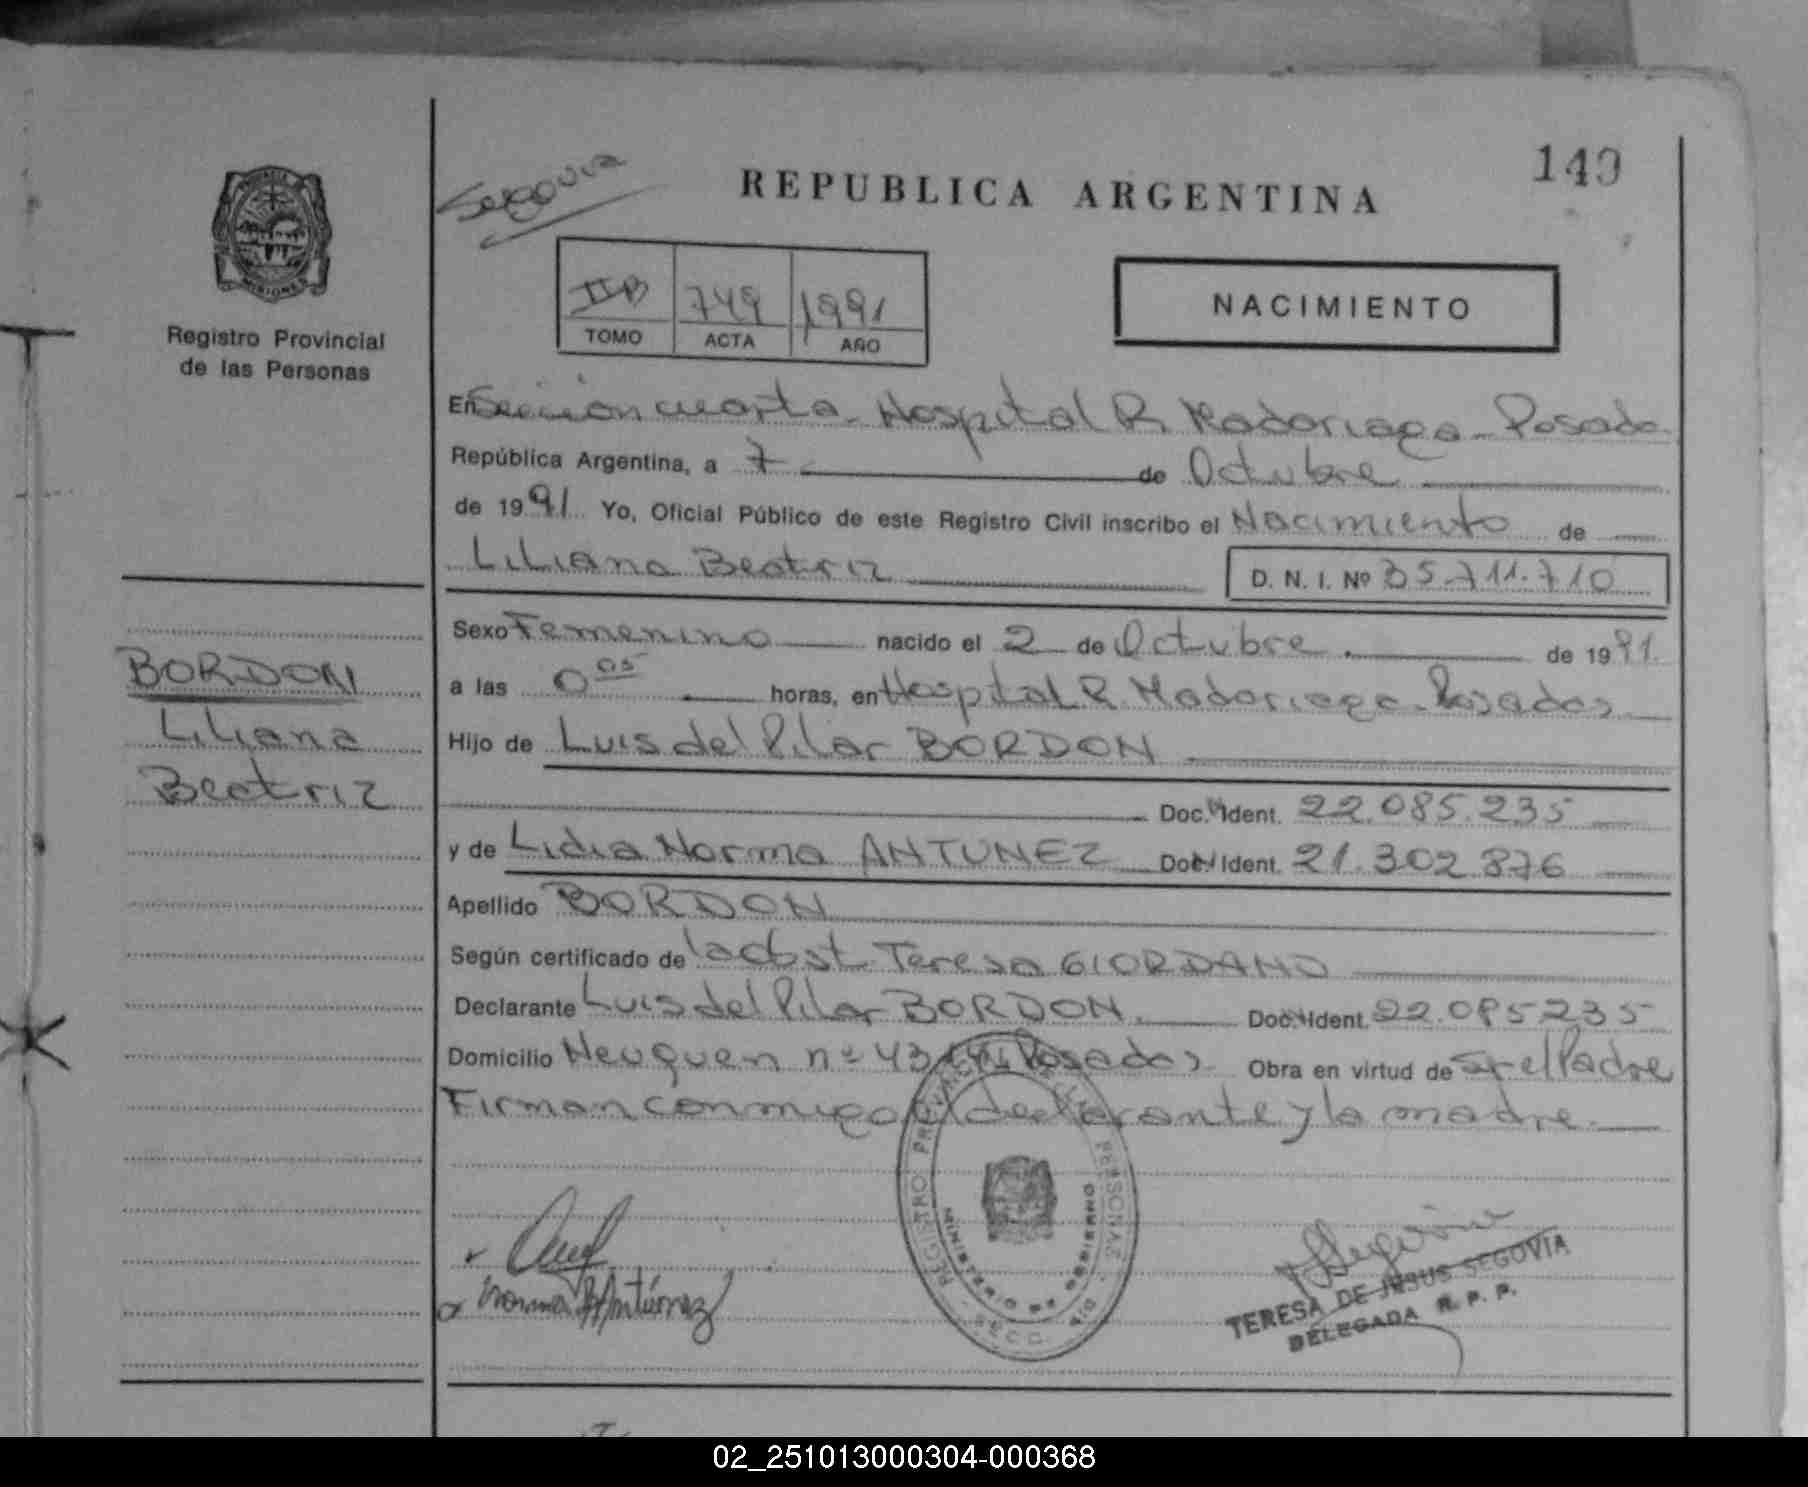 149
Segovia
REPUBLICA ARGENTINA
MISIONES
Registro Provincial
de las Personas
II B 749 1991
TOMO ACTA AÑO
NACIMIENTO
En Sección cuarta - Hospital R. Madariaga - Posadas
República Argentina, a 7 de Octubre
de 1991 Yo, Oficial Público de este Registro Civil inscribo el Nacimiento de
Liliana Beatriz D. N. I. Nº 35.711.710
Sexo Femenino nacido el 2 de Octubre. de 1991.
a las 0 05 horas, en Hospital R. Madariaga - Posadas
Hijo de Luis del Pilar BORDON
Doc. Ident. 22.085.235
y de Lidia Norma ANTUNEZ Doc. Ident. 21.302.876
Apellido BORDON
Según certificado de la obst. Teresa GIORDANO
Declarante Luis del Pilar BORDON. Doc. Ident. 22.085235
Domicilio Neuquen nº Posadas Obra en virtud de Padre
Firman conmigo el declarante y la madre.
BORDON
Liliana
Beatriz
REGISTRO PROVINCIAL PERSONAS
MINISTERIO DE GOBIERNO
Norma Antúnez
Segovia
TERESA DE JESUS SEGOVIA
DELEGADA R. P. P.
02_251013000304-000368